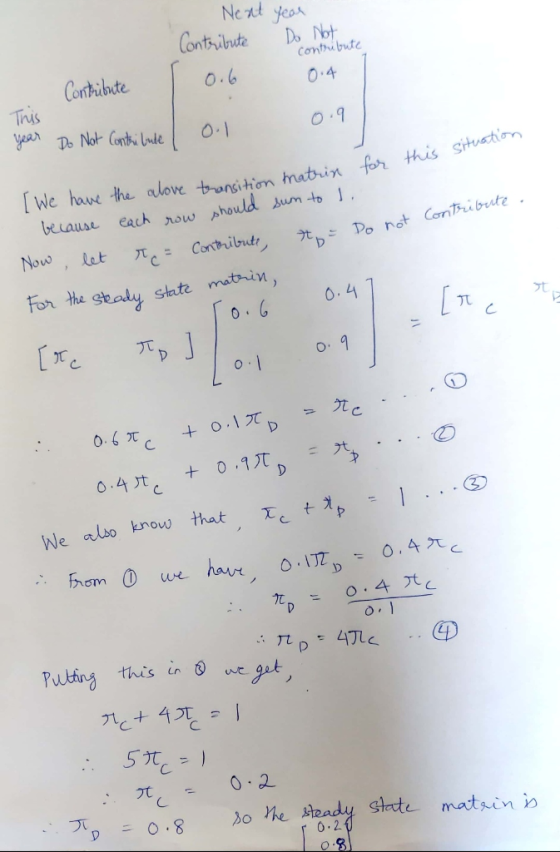 Next year
Contribute Do Not contribute
Contribute [ 0.6 0.4
This year Do Not Contribute 0.1 0.9 ]
[We have the above transition matrix for this situation
because each row should sum to 1.
Now, let π_C = Contribute, π_D = Do not contribute.
For the steady state matrix,
[π_C π_D] [ 0.6 0.4
0.1 0.9 ] = [π_C π_D
∴ 0.6π_C + 0.1π_D = π_C ... ①
0.4π_C + 0.9π_D = π_D ... ②
We also know that, π_C + π_D = 1 ... ③
∴ From ① we have, 0.1π_D = 0.4π_C
∴ π_D = 0.4π_C / 0.1
∴ π_D = 4π_C .. ④
Putting this in ③ we get,
π_C + 4π_C = 1
∴ 5π_C = 1
∴ π_C = 0.2
∴ π_D = 0.8 so the steady state matrix is
[ 0.2
0.8 ]